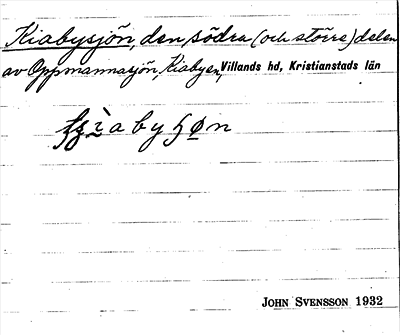 Kiabysjön, den södra (och större) delen
av Oppmannasjön, Kiaby sn, Villands hd, Kristianstads län
JOHN SVENSSON 1932